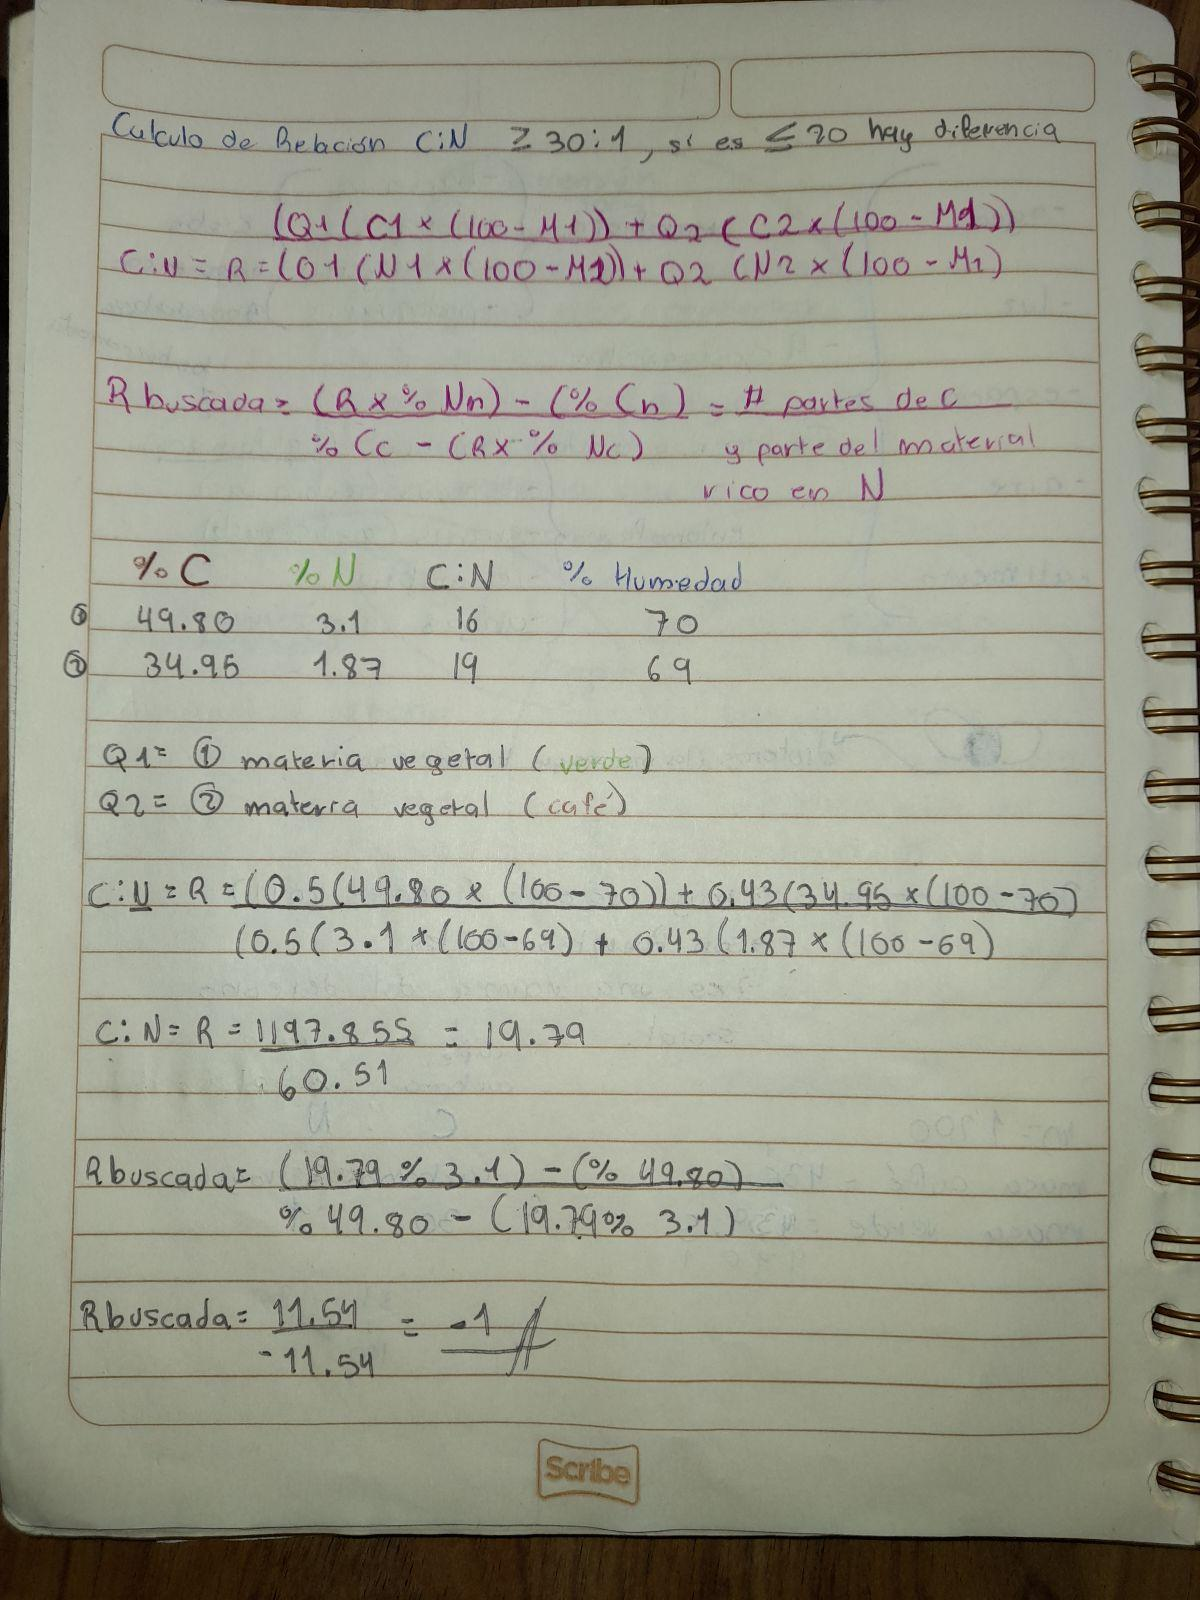 Calculo de Relación C:N ≥ 30:1, si es ≤ 20 hay diferencia
(Q1 (C1 x (100 - M1)) + Q2 (C2 x (100 - M1))
C:N = R = (Q1 (N1 x (100 - M2)) + Q2 (N2 x (100 - M2)
R buscada = (R x % Nn) - (% Cn) = # partes de C
% Cc - (R x % Nc) y parte del material
rico en N
%C %N C:N % Humedad
① 49.80 3.1 16 70
② 34.95 1.87 19 69
Q1 = ① materia vegetal (verde)
Q2 = ② materia vegetal (café)
C:N = R = (0.5 (49.80 x (100 - 70)) + 0.43 (34.95 x (100 - 70)
(0.5 (3.1 x (100 - 69) + 0.43 (1.87 x (100 - 69)
C:N = R = 1197.855 = 19.79
60.51
R buscada = (19.79 % 3.1) - (% 49.80)
% 49.80 - (19.79 % 3.1)
R buscada = 11.54 = -1
-11.54
Scribe